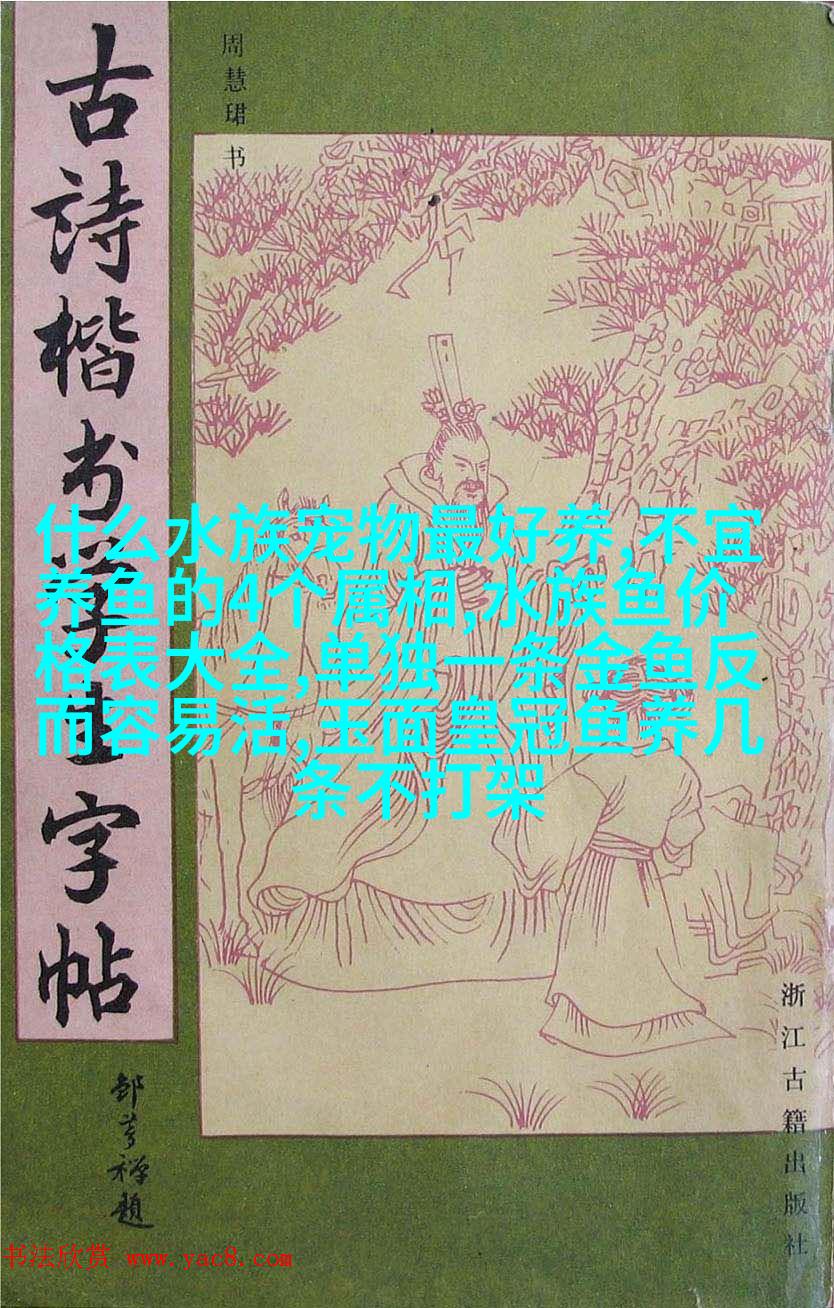 古詩楷书学生字帖
周慧珺书
什么水族宠物最好养,不宜
养鱼的4个属相,水族鱼价
格表大全,单独一条金鱼反
而容易活,玉面皇冠鱼养几
条不打架
浙江古籍出版社
邹梦禅题
书法欣赏 www.yac8.com